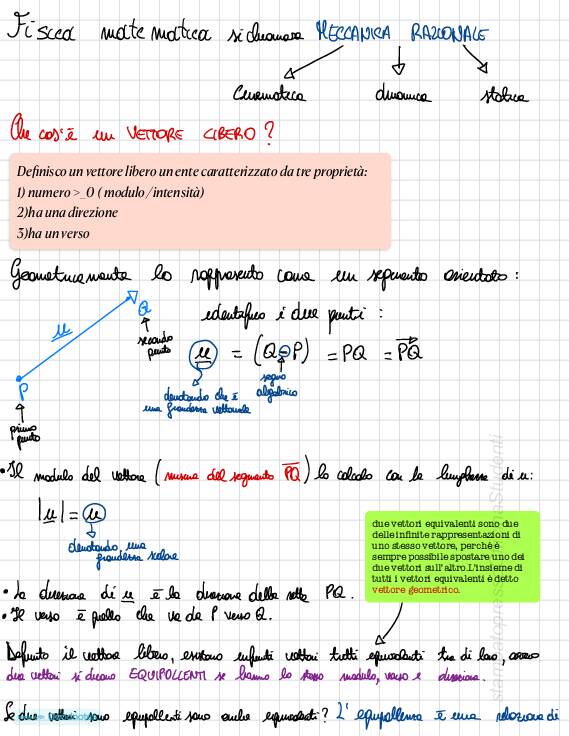 Fisica matematica si chiamava MECCANICA RAZIONALE
Cinematica dinamica statica
Che cos'è un VETTORE LIBERO?
Definisco un vettore libero un ente caratterizzato da tre proprietà:
1) numero >_0 ( modulo / intensità)
2)ha una direzione
3)ha un verso
Geometricamente lo rappresento come un segmento orientato:
Q
secondo
punto
u
P
primo
punto
identifico i due punti:
u = (Q-P) = PQ = PQ
denotando che è
una grandezza vettoriale
segno
algebrico
• Il modulo del vettore (misura del segmento PQ) lo calcolo con la lunghezza di u:
|u| = u
denotando una
grandezza scalare
due vettori equivalenti sono due
delle infinite rappresentazioni di
uno stesso vettore, perchè è
sempre possibile spostare uno dei
due vettori sull'altro.L'insieme di
tutti i vettori equivalenti è detto
vettore geometrico.
• La direzione di u è la direzione della retta PQ.
• Il verso è quello che va da P verso Q.
Definito il vettore libero, esistono infiniti vettori tutti equivalenti tra di loro, ovvero
due vettori si dicono EQUIPOLLENTI se hanno lo stesso modulo, verso e direzione.
Se due vettori sono equipollenti sono anche equivalenti? L'equipollenza è una relazione di